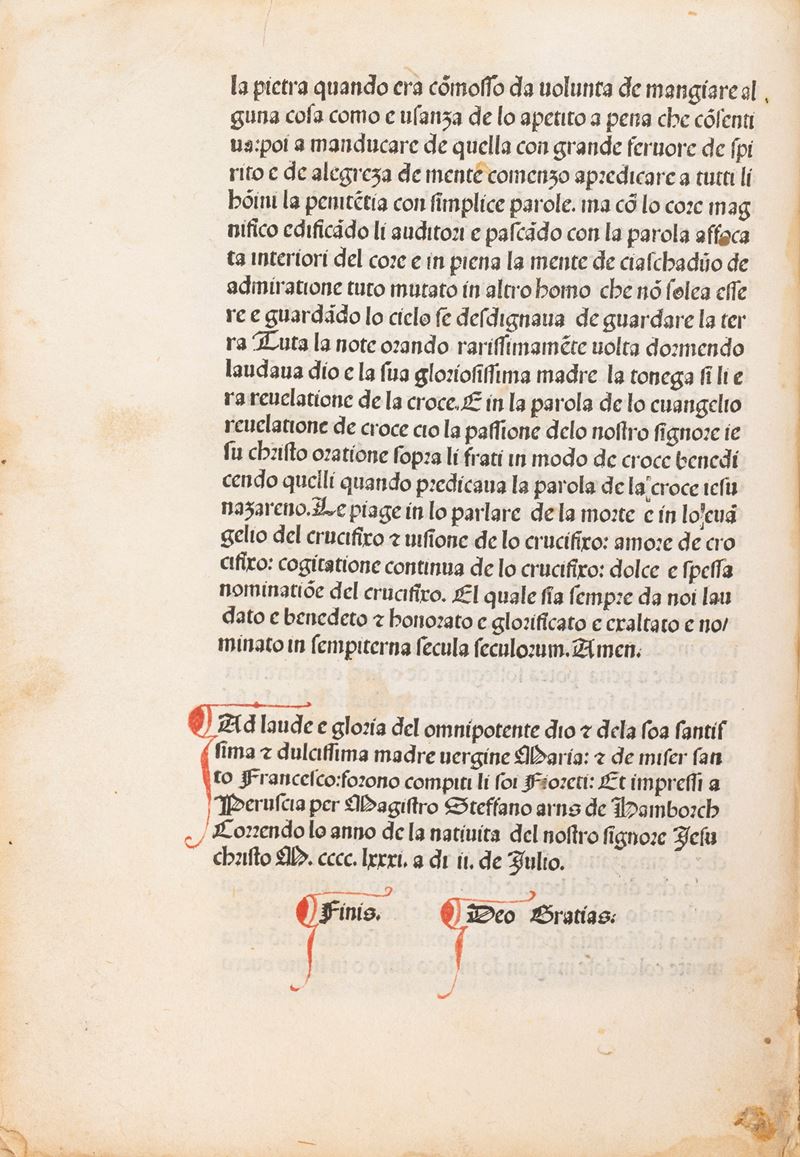 la pietra quando era cõmoſſo da uolunta de mangiare al
guna coſa como e uſanza de lo apetito a pena che cõſenti
ua:poi a manducare de quella con grande feruore de ſpi
rito e de alegreza de mente comenzo apredicare a tutti li
hõini la penitẽtia con ſimplice parole. ma cõ lo core mag
nifico edificãdo li auditori e paſcãdo con la parola affoca
ta interiori del core e in piena la mente de ciaſchadũo de
admiratione tuto mutato in altro homo che nõ ſolea eſſe
re e guardãdo lo cielo ſe deſdignaua de guardare la ter
ra Tuta la note orando rariſſimamẽte uolta dormendo
laudaua dio e la ſua glorioſiſſima madre la tonega ſi li e
ra reuelatione de la croce.E in la parola de lo euangelio
reuelatione de croce cio la paſſione delo noſtro ſignore ie
ſu chriſto oratione ſopra li frati in modo de croce benedi
cendo quelli quando predicaua la parola de la croce ieſu
nazareno.Le piage in lo parlare de la morte e in lo euã
gelio del crucifixo ⁊ uiſione de lo crucifixo: amore de cro
cifixo: cogitatione continua de lo crucifixo: dolce e ſpeſſa
nominatiõe del crucifixo. El quale ſia ſempre da noi lau
dato e benedeto ⁊ honorato e glorificato e exaltato e no/
minato in ſempiterna ſecula ſeculorum.Amen.
Ad laude e gloria del omnipotente dio ⁊ dela ſoa ſantiſ
ſima ⁊ dulciſſima madre uergine Maria: ⁊ de miſer ſan
to Franceſco:forono compiti li ſoi Fioreti: Et impreſſi a
Peruſcia per Magiſtro Steffano arns de Hamborch
Correndo lo anno de la natiuita del noſtro ſignore Jeſu
chriſto M. cccc. lxxxi. a di ii. de Julio.
Finis.
Deo Gratias.